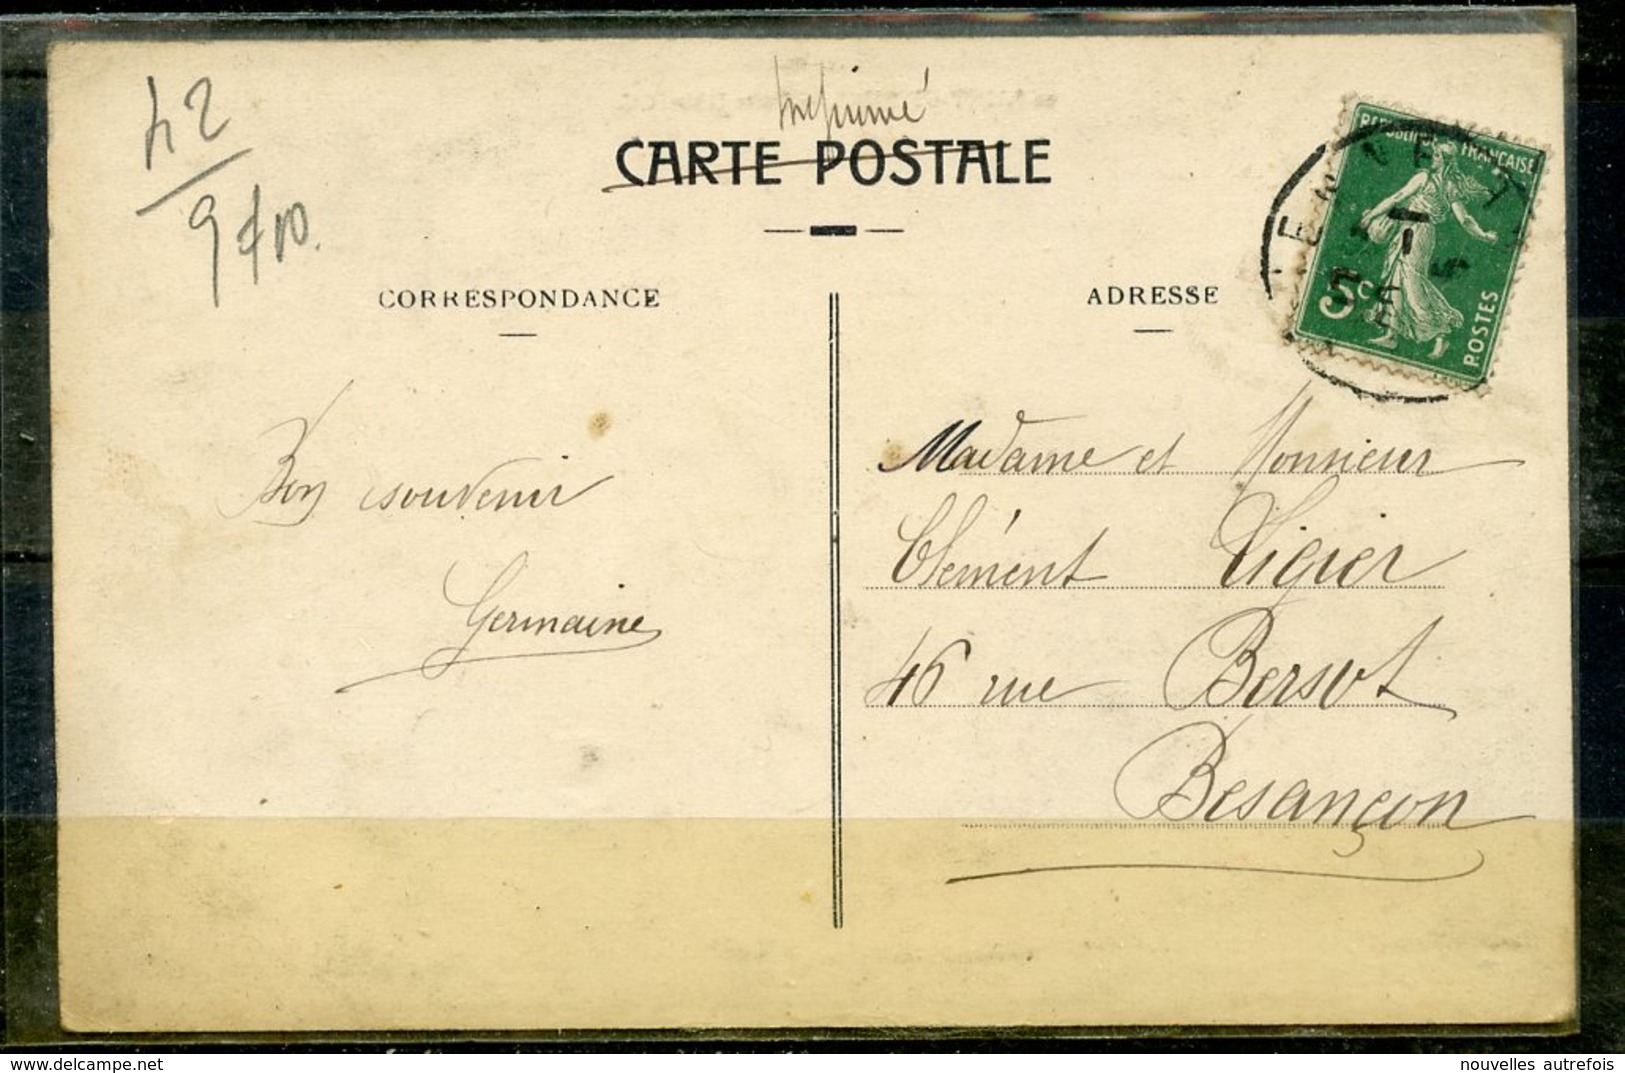 42
9
Imprimé
CARTE POSTALE
REPUBLIQUE FRANÇAISE
5c
POSTES
CORRESPONDANCE
ADRESSE
Bon souvenir
Germaine
Madame et Monsieur
Clément Ligier
46 rue Bersot
Besançon
www.delcampe.net
nouvelles autrefois